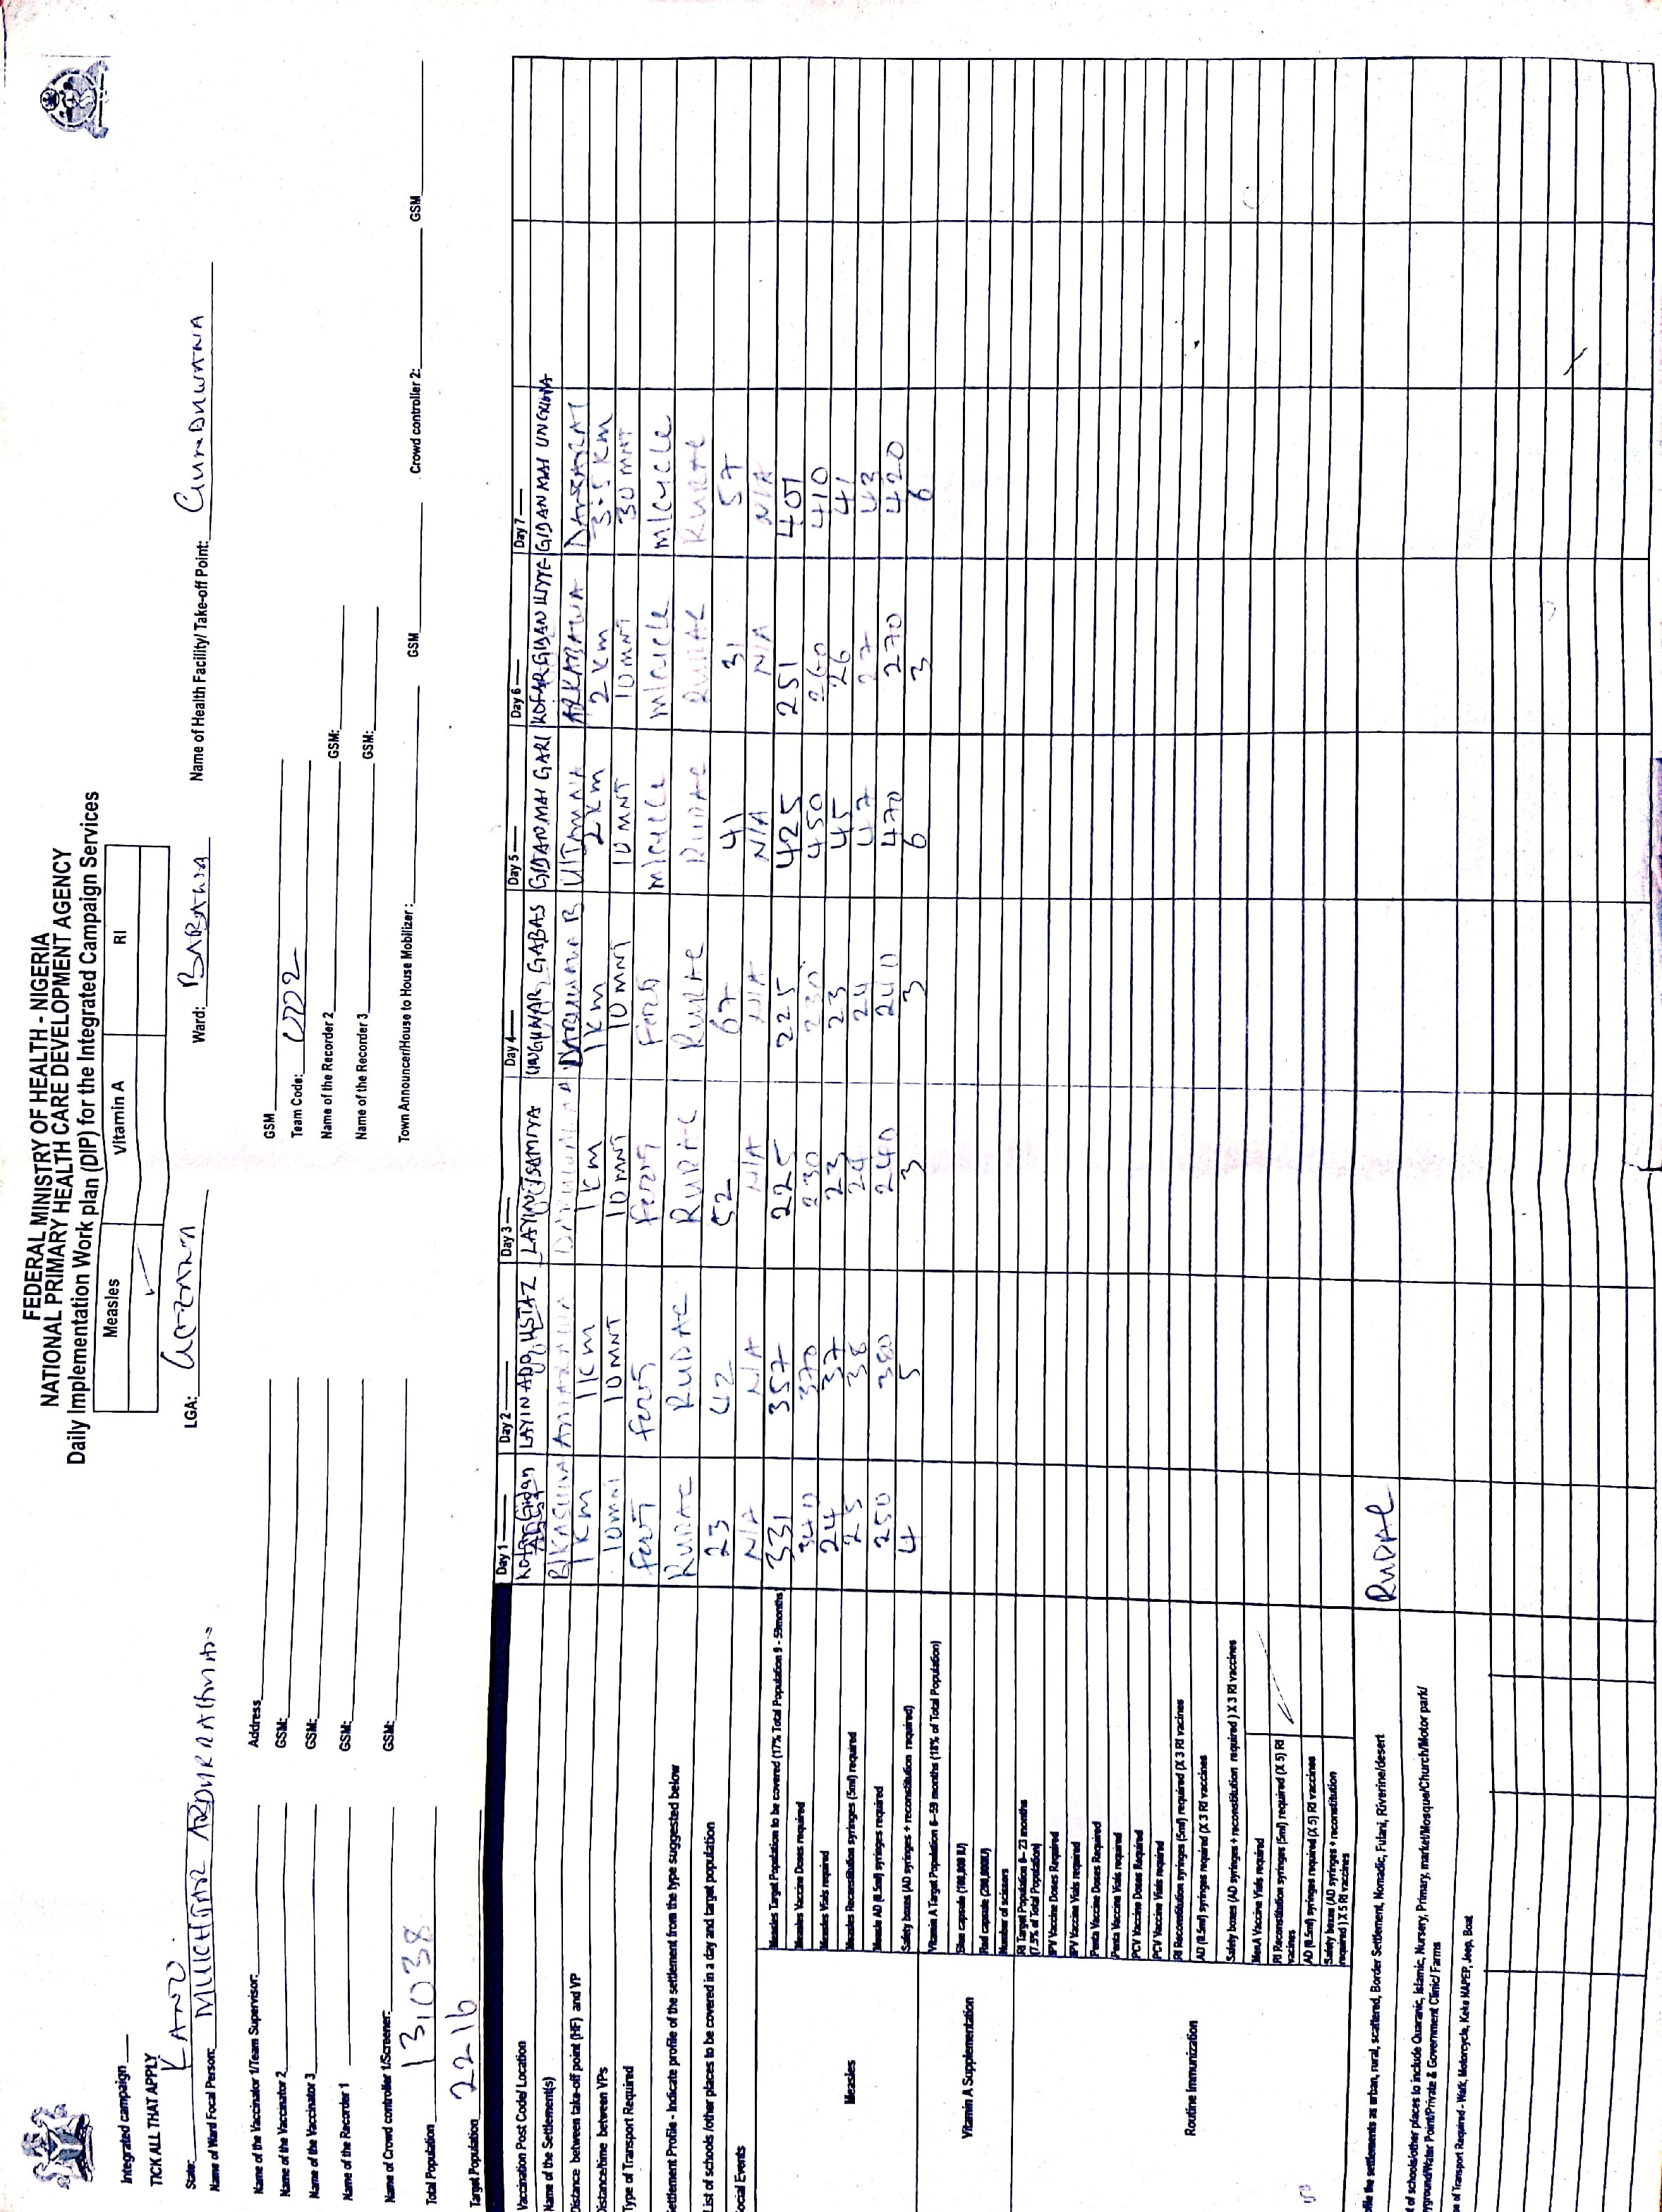 FEDERAL MINISTRY OF HEALTH - NIGERIA
NATIONAL PRIMARY HEALTH CARE DEVELOPMENT AGENCY
Daily Implementation Work plan (DIP) for the Integrated Campaign Services
Integrated campaign
TICK ALL THAT APPLY
Measles Vitamin A RI
State: KANO LGA: Ward: Name of Health Facility/ Take-off Point:
Name of Ward Focal Person: MUKHTAR ABDURRAHMAN
Name of the Vaccinator 1/Team Supervisor: Address GSM
Name of the Vaccinator 2 GSM: Team Code:
Name of the Vaccinator 3 GSM: Name of the Recorder 2 GSM:
Name of the Recorder 1 GSM: Name of the Recorder 3 GSM:
Name of Crowd controller 1/Screener: GSM: Town Announcer/House to House Mobilizer: GSM Crowd controller 2: GSM
Total Population 13,038
Target Population 2216
Day 1 Day 2 Day 3 Day 4 Day 5 Day 6 Day 7
Vaccination Post Code/ Location LAYIN LAYIN TSAMIYA UNGUWAR GABAS GIDAN MAI GARI KOFAR GIDAN GIDAN MAI UNGUWA
Name of the Settlement(s)
Distance between take-off point (HF) and VP 1KM 1KM 1KM 1KM 2KM 2KM 3.5KM
Distance/time between VPs 10MNT 10MNT 10MNT 10MNT 10MNT 10MNT 30MNT
Type of Transport Required M/CYCLE M/CYCLE M/CYCLE
Settlement Profile - Indicate profile of the settlement from the type suggested below RURAL RURAL RURAL RURAL RURAL RURAL RURAL
List of schools /other places to be covered in a day and target population 23 42 52 67 41 31 57
Social Events N/A N/A N/A N/A N/A N/A N/A
Measles
Measles Target Population to be covered (17% Total Population 9 - 59months) 331 357 225 225 425 251 401
Measles Vaccine Doses required 340 370 230 230 450 260 410
Measles Vials required 24 37 23 23 45 26 41
Measles Reconstitution syringes (5ml) required 25 38 24 24 47 27 43
Measle AD (0.5ml) syringes required 250 380 240 240 470 270 420
Safety boxes (AD syringes + reconstitution required) 4 5 3 3 6 3 6
Vitamin A Supplementation
Vitamin A Target Population 6-59 months (18% of Total Population)
Blue capsule (100,000 IU)
Red capsule (200,000IU)
Number of scissors
Routine Immunization
RI Target Population 0- 23 months
(7.5% of Total Population)
IPV Vaccine Doses Required
IPV Vaccine Vials required
Penta Vaccine Doses Required
Penta Vaccine Vials required
PCV Vaccine Doses Required
PCV Vaccine Vials required
RI Reconstitution syringes (5ml) required (X 3 RI vacines
AD (0.5ml) syringes required (X 3 RI vaccines
Safety boxes (AD syringes + reconstitution required ) X 3 RI vaccines
MenA Vaccine Vials required
RI Reconstitution syringes (5ml) required (X 5) RI
vacines
AD (0.5ml) syringes required (X 5) RI vaccines
Safety boxes (AD syringes + reconstitution
required ) X 5 RI vaccines
the settlements as urban, rural, scattered, Border Settlement, Nomadic, Fulani, Riverine/desert RURAL
of schools/other places to include Quaranic, Islamic, Nursery, Primary, market/Mosque/Church/Motor park/
Water Point/Private & Government Clinic/ Farms
of Transport Required - Walk, Motorcycle, Keke NAPEP, Jeep, Boat